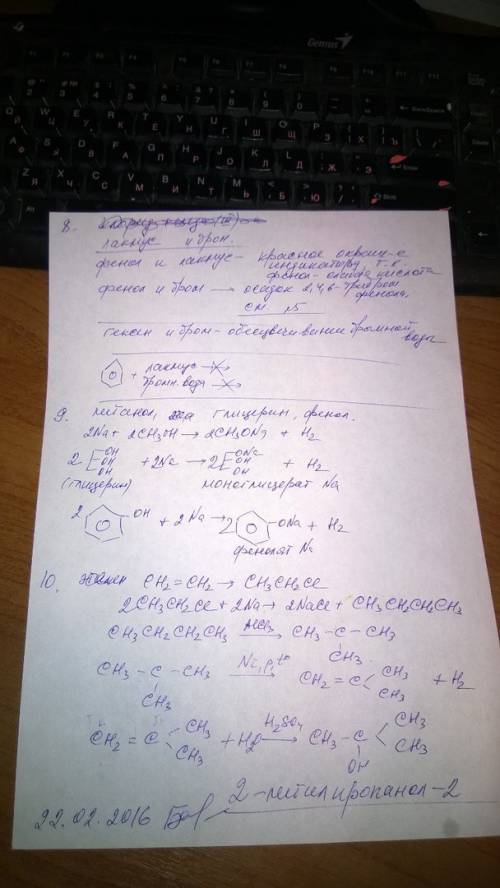 Genius
8.
лакмус и бром.
фенол и лакмус - красное окраш-е
индикатору, т.к.
фенол - кислота
фенол и бром → осадок 2,4,6-трибром
фенола,
см. №5
гексен и бром - обесцвечивание бромной
воды
+ лакмус →
бромн. вода →
9. метанол, глицерин, фенол.
2Na + 2CH3OH → 2CH3ONa + H2
2 OH OH OH + 2Na → 2 ONa OH OH + H2
(глицерин) моноглицерат Na
2 OH + 2Na → 2 ONa + H2
фенолят Na
10. этилен CH2=CH2 → CH3CH2Cl
2CH3CH2Cl + 2Na → 2NaCl + CH3CH2CH2CH3
CH3CH2CH2CH3 AlCl3 → CH3-C-CH3
CH3
CH3-C-CH3 Ni, t° → CH2=C CH3 CH3 + H2
CH3
CH2=C CH3 CH3 + H2O H2SO4 → CH3-C CH3 CH3
OH
2-метилпропанол-2
22.02.2016